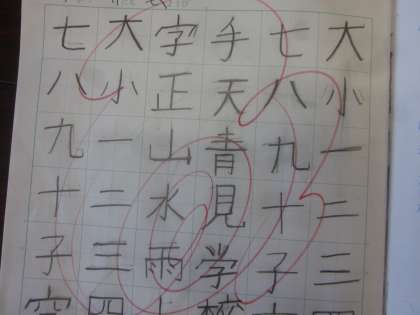 大小一二三四
七八九十子
手天青見学校
字正山水雨
大小一二三四
七八九十子空